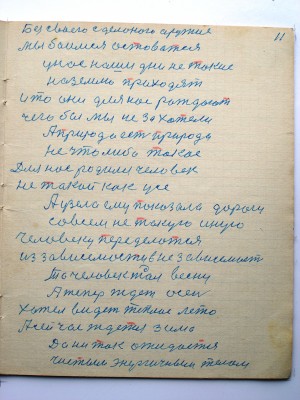 11
Без своего зделоного аружие
мы баимся астоватся
у нас наши дни не такие
на землю приходят
и то они для нас раждают
чего бы мы не захотели
А природа ест природа
не что либо такое
Для нас родился человек
не такой как усе
А узела ему показала дорогу
совсем не такую иную
Человеку переделатся
из зависемость в независемост
Та человек ждал весну
А тепер ждет осен
Хотел видет теплое лето
А сейчас ждется зима
Да ни так ожидается
чистым энургичным телом